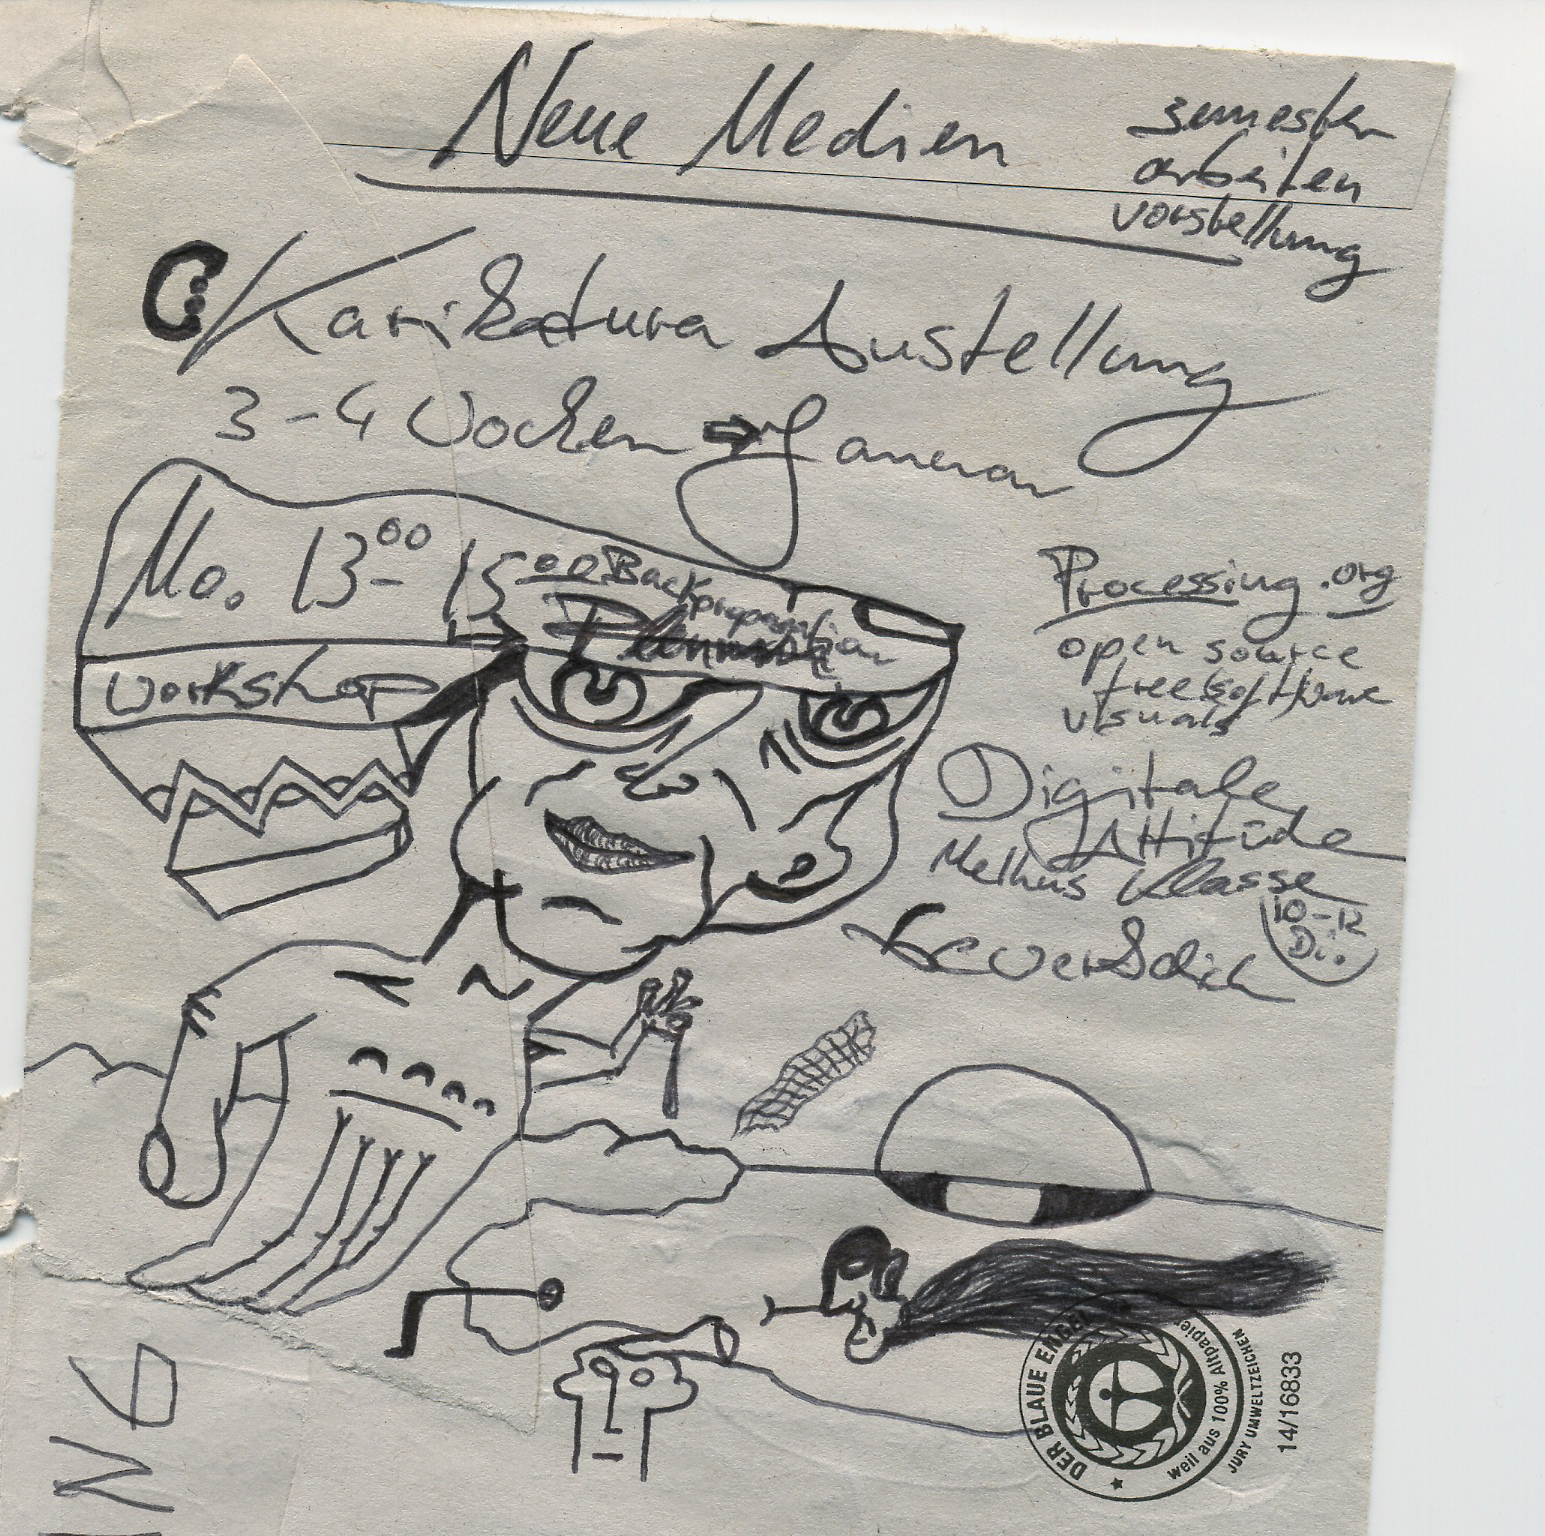 Neue Medien
semester
arbeiten
vorstellung
Karikatura Austellung
3-4 Wochen ⇒ Januar
Mo. 13⁰⁰- 15⁰⁰ Backpropagation
workshop
Processing.org
open source
free software
visuals
Digitale
Attitüde
Melhus Klasse
10-12
Di.
DER BLAUE ENGEL
weil aus 100% Altpapier
JURY UMWELTZEICHEN
14/16833